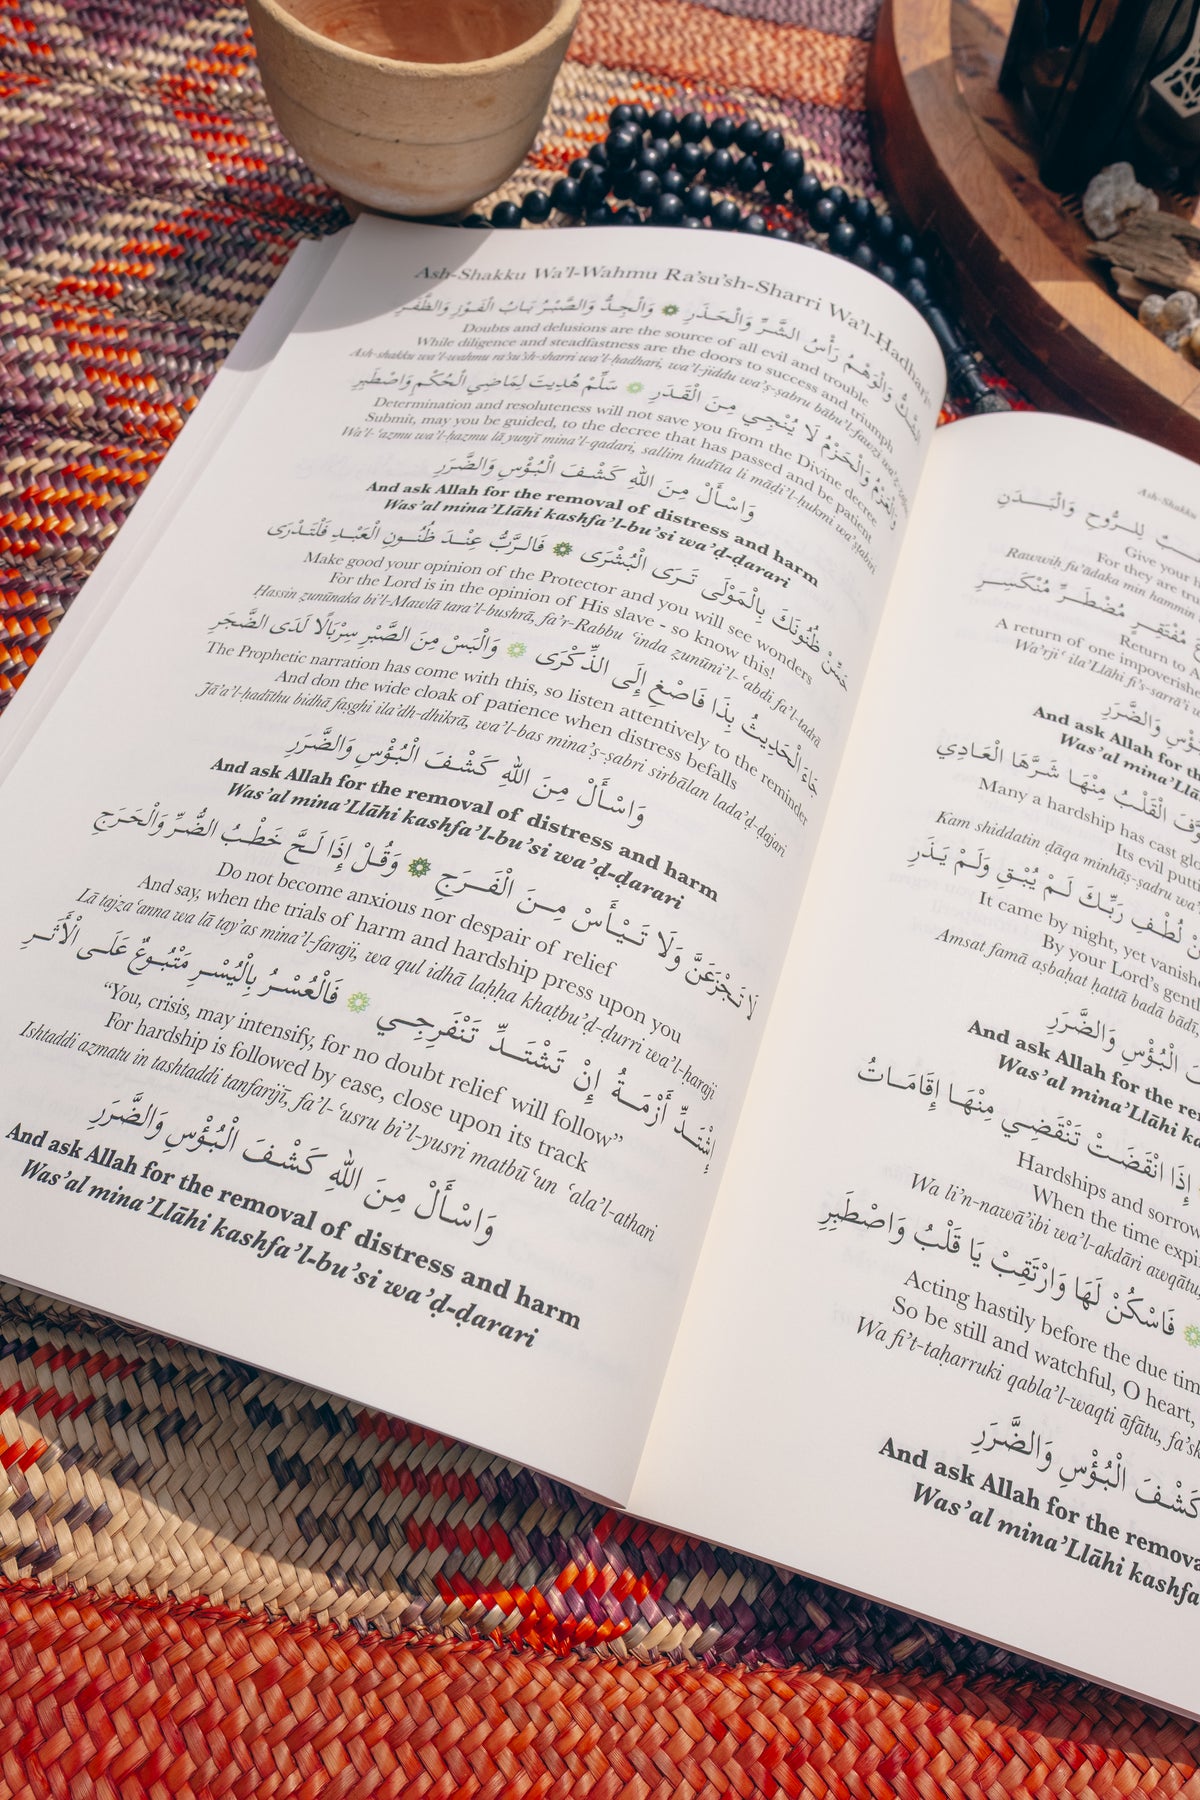 Ash-Shakku Wa'l-Wahmu Ra'su'sh-Sharri Wa'l-Ḥadhari
الشَّكُّ وَالْوَهْمُ رَأْسُ الشَّرِّ وَالْحَذَرِ ۞ وَالْجِدُّ وَالصَّبْرُ بَابُ الْفَوْزِ وَالظَّفَرِ
Doubts and delusions are the source of all evil and trouble
While diligence and steadfastness are the doors to success and triumph
Ash-shakku wa'l-wahmu ra'su'sh-sharri wa'l-ḥadhari, wa'l-jiddu wa'ṣ-ṣabru bābu'l-fawzi
وَالْعَزْمُ وَالْحَزْمُ لَا يُنْجِي مِنَ الْقَدَرِ ۞ سَلِّمْ هُدِيتَ لِمَاضِي الْحُكْمِ وَاصْطَبِرِ
Determination and resoluteness will not save you from the Divine decree
Submit, may you be guided, to the decree that has passed and be patient
Wa'l-'azmu wa'l-ḥazmu lā yunjī mina'l-qadari, sallim hudīta li māḍi'l-ḥukmi wa'ṣṭabiri
وَاسْأَلْ مِنَ اللهِ كَشْفَ الْبُؤْسِ وَالضَّرَرِ
And ask Allah for the removal of distress and harm
Was'al mina'Llāhi kashfa'l-bu'si wa'ḍ-ḍarari
حَسِّنْ ظُنُونَكَ بِالْمَوْلَى تَرَى الْبُشْرَى ۞ فَالرَّبُّ عِنْدَ ظُنُونِ الْعَبْدِ فَلْتَدْرَى
Make good your opinion of the Protector and you will see wonders
For the Lord is in the opinion of His slave - so know this!
Ḥassin ẓunūnaka bi'l-Mawlā tara'l-bushrā, fa'r-Rabbu 'inda ẓunūni'l-'abdi fa'l-tadrā
جَاءَ الْحَدِيثُ بِذَا فَاصْغِ إِلَى الذِّكْرَى ۞ وَالْبَسْ مِنَ الصَّبْرِ سِرْبَالًا لَدَى الضَّجَرِ
The Prophetic narration has come with this, so listen attentively to the reminder
And don the wide cloak of patience when distress befalls
Jā'a'l-ḥadīthu bidhā faṣghi ila'dh-dhikrā, wa'l-bas mina'ṣ-ṣabri sirbālan lada'ḍ-ḍajari
وَاسْأَلْ مِنَ اللهِ كَشْفَ الْبُؤْسِ وَالضَّرَرِ
And ask Allah for the removal of distress and harm
Was'al mina'Llāhi kashfa'l-bu'si wa'ḍ-ḍarari
لَا تَجْزَعَنَّ وَلَا تَيْأَسْ مِنَ الْفَرَجِ ۞ وَقُلْ إِذَا لَحَّ خَطْبُ الضُّرِّ وَالْحَرَجِ
Do not become anxious nor despair of relief
And say, when the trials of harm and hardship press upon you
Lā tajza'anna wa lā tay'as mina'l-faraji, wa qul idhā laḥḥa khaṭbu'ḍ-ḍurri wa'l-ḥaraji
إِشْتَدِّ أَزْمَةُ إِنْ تَشْتَدِّ تَنْفَرِجِي ۞ فَالْعُسْرُ بِالْيُسْرِ مَتْبُوعٌ عَلَى الْأَثَرِ
“You, crisis, may intensify, for no doubt relief will follow”
For hardship is followed by ease, close upon its track
Ishtaddi azmatu in tashtaddi tanfarijī, fa'l-'usru bi'l-yusri matbū'un 'ala'l-athari
وَاسْأَلْ مِنَ اللهِ كَشْفَ الْبُؤْسِ وَالضَّرَرِ
And ask Allah for the removal of distress and harm
Was'al mina'Llāhi kashfa'l-bu'si wa'ḍ-ḍarari
Ash-Shakku
لِلرُّوحِ وَالْبَدَنِ
Give your
For they are
Rawwiḥ fu'ādaka min hammin
مُفْتَقِرٍ مُضْطَرٍّ مُنْكَسِرِ
Return to
A return of one
Wa'rji' ila'Llāhi fi's-sarrā'i
وَالضَّرَرِ
And ask Allah for
Was'al mina'Llā
الْقَلْبُ مِنْهَا شَرَّهَا الْعَادِي
Many a hardship has cast
Its evil
Kam shiddatin ḍāqa minhāṣ-ṣadru
لُطْفِ رَبِّكَ لَمْ يُبْقِ وَلَمْ يَذَرِ
It came by night, yet
By your Lord's
Amsat famā aṣbaḥat ḥattā badā bādi,
الْبُؤْسِ وَالضَّرَرِ
And ask Allah for the
Was'al mina'Llāhi
إِذَا انْقَضَتْ تَنْقَضِي مِنْهَا إِقَامَاتُ
Hardships and
When the time
Wa li'n-nawā'ibi wa'l-akdāri
فَاسْكُنْ لَهَا وَارْتَقِبْ يَا قَلْبُ وَاصْطَبِرِ
Acting hastily before the due
So be still and watchful, O heart,
Wa fi't-taḥarruki qabla'l-waqti āfātu,
كَشْفَ الْبُؤْسِ وَالضَّرَرِ
And ask Allah for the
Was'al mina'Llāhi